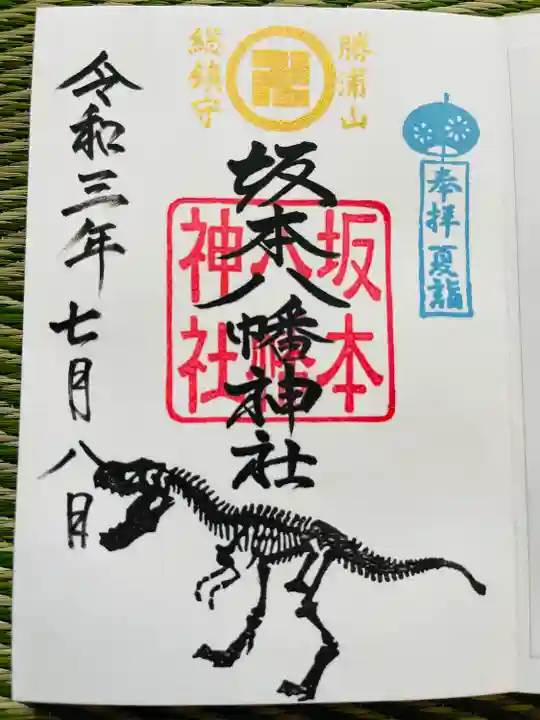 勝浦山
総鎮守
奉拝 夏詣
坂本八幡神社
坂本
八幡
神社
令和三年七月八日